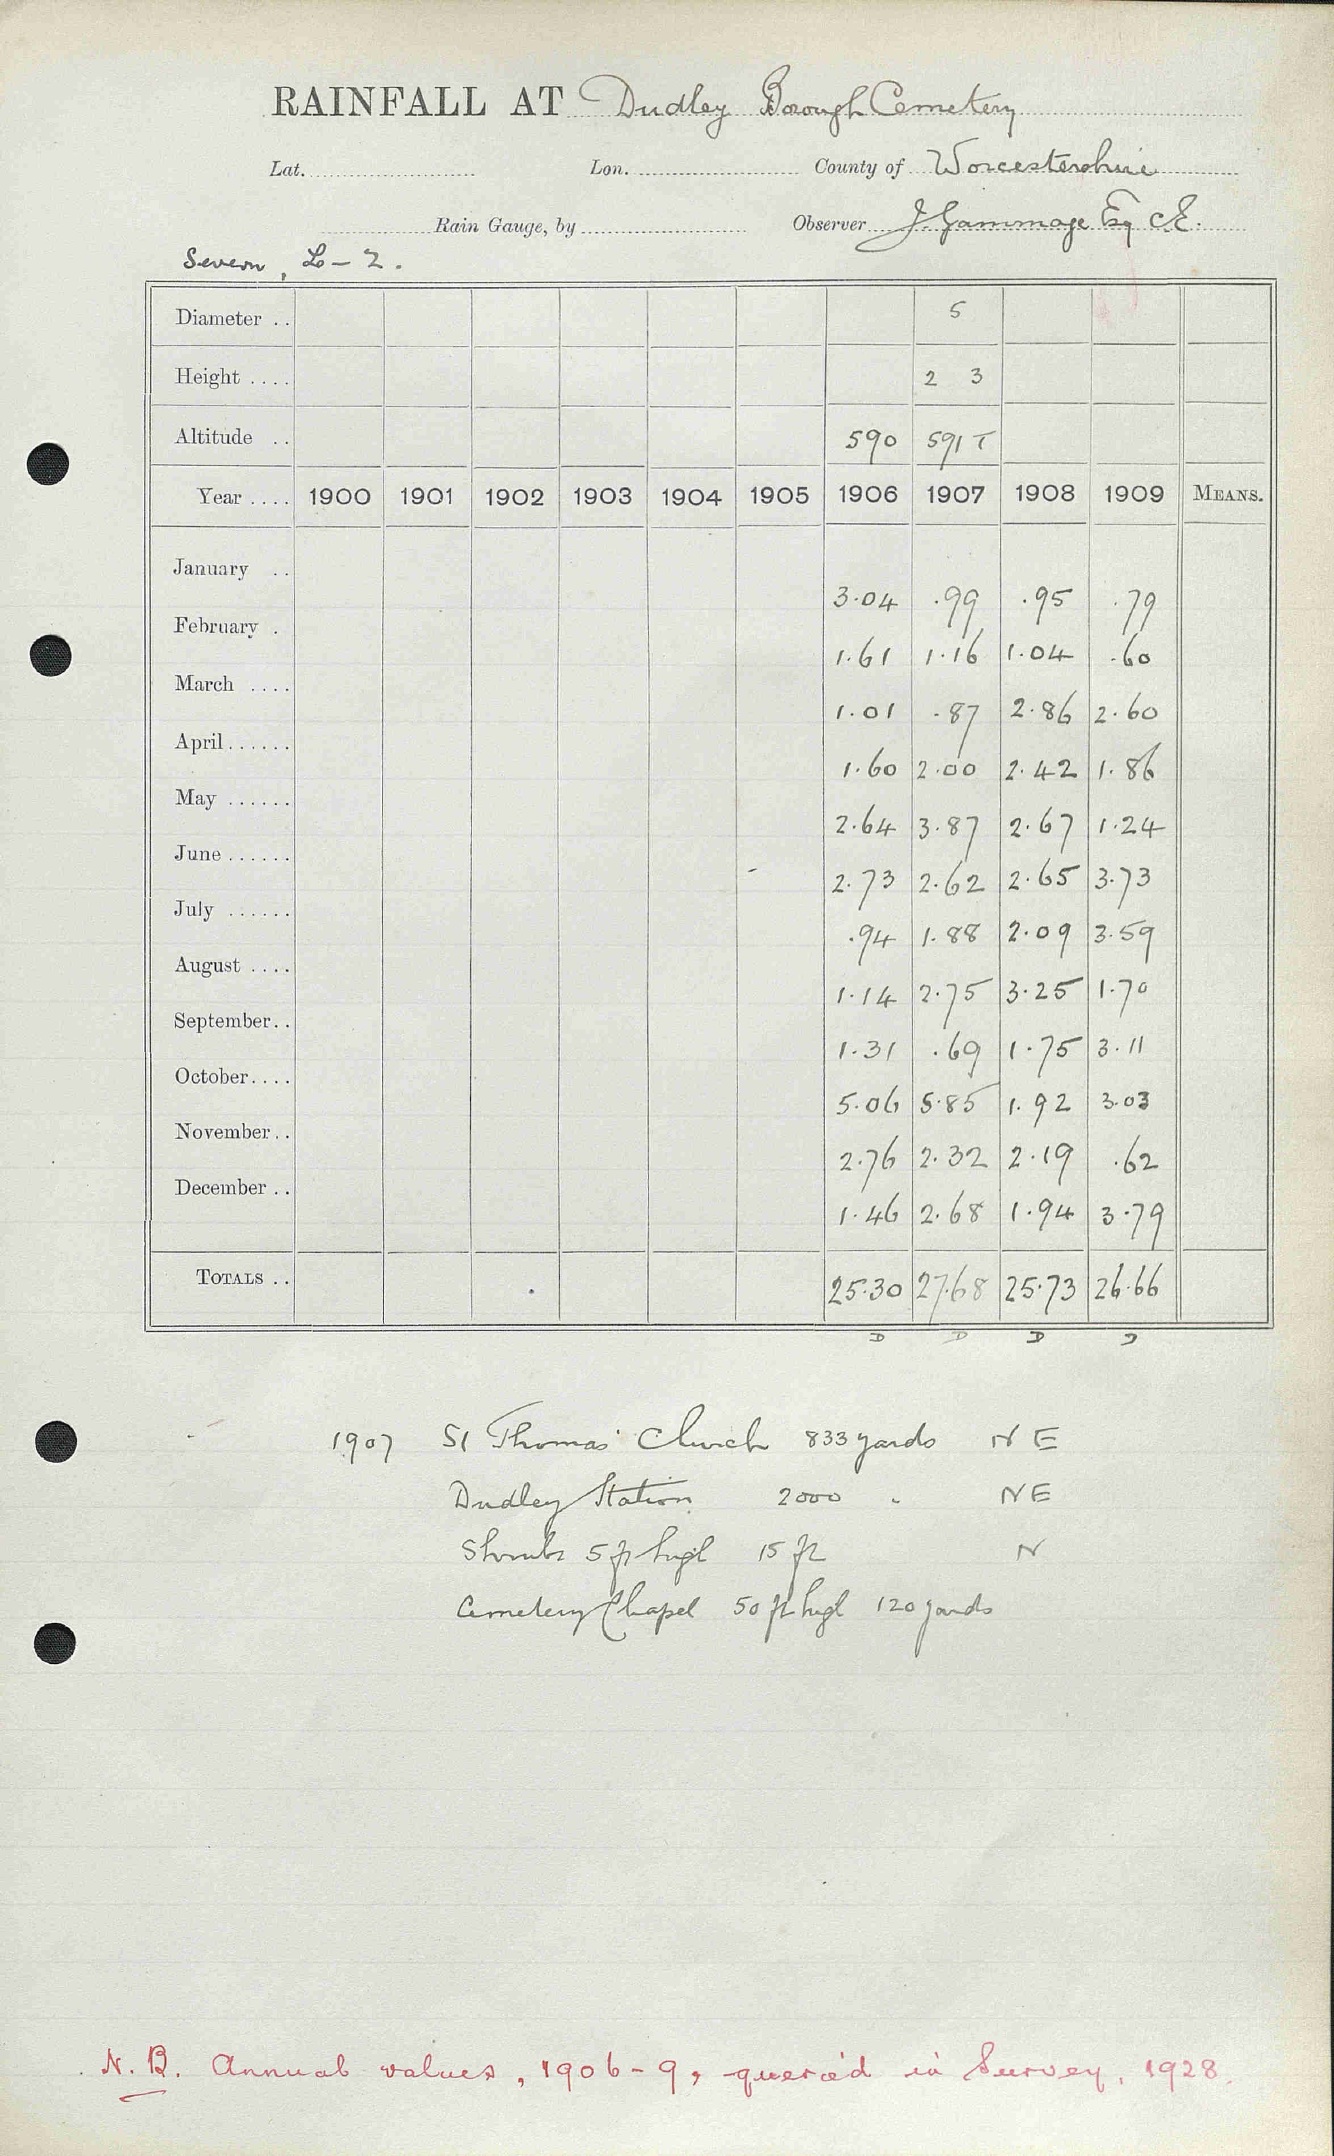 RAINFALL AT Dudley Borough Cemetery
Lat. Lon. County of Worcestershire
Rain Gauge, by Observer J. Gammage Esq C.E.
Severn, L - 2.
Diameter .. 5
Height .... 2 3
Altitude .. 590 591 T
Year .... 1900 1901 1902 1903 1904 1905 1906 1907 1908 1909 MEANS.
January .. 3.04 .99 .95 .79
February . 1.61 1.16 1.04 .60
March .... 1.01 .87 2.86 2.60
April...... 1.60 2.00 2.42 1.86
May ...... 2.64 3.87 2.67 1.24
June ...... 2.73 2.62 2.65 3.73
July ...... .94 1.88 2.09 3.59
August .... 1.14 2.75 3.25 1.70
September.. 1.31 .69 1.75 3.11
October.... 5.06 5.85 1.92 3.03
November.. 2.76 2.32 2.19 .62
December .. 1.46 2.68 1.94 3.79
TOTALS .. 25.30 27.68 25.73 26.66
D D D D
1907 St Thomas' Church 833 yards N E
Dudley Station 2000 " NE
Shrubs 5 ft high 15 ft N
Cemetery Chapel 50 ft high 120 yards
N.B. Annual values, 1906-9, queried in Survey, 1928.